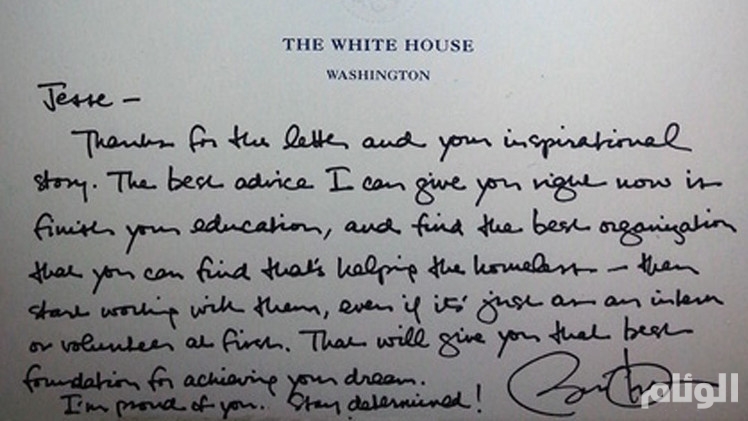 THE WHITE HOUSE
WASHINGTON
Jesse —
Thanks for the letter and your inspirational
story. The best advice I can give you right now is
finish your education, and find the best organization
that you can find that's helping the homeless — then
start working with them, even if it's just as an intern
or volunteer at first. That will give you that best
foundation for achieving your dream.
I'm proud of you. Stay determined!
الوئام